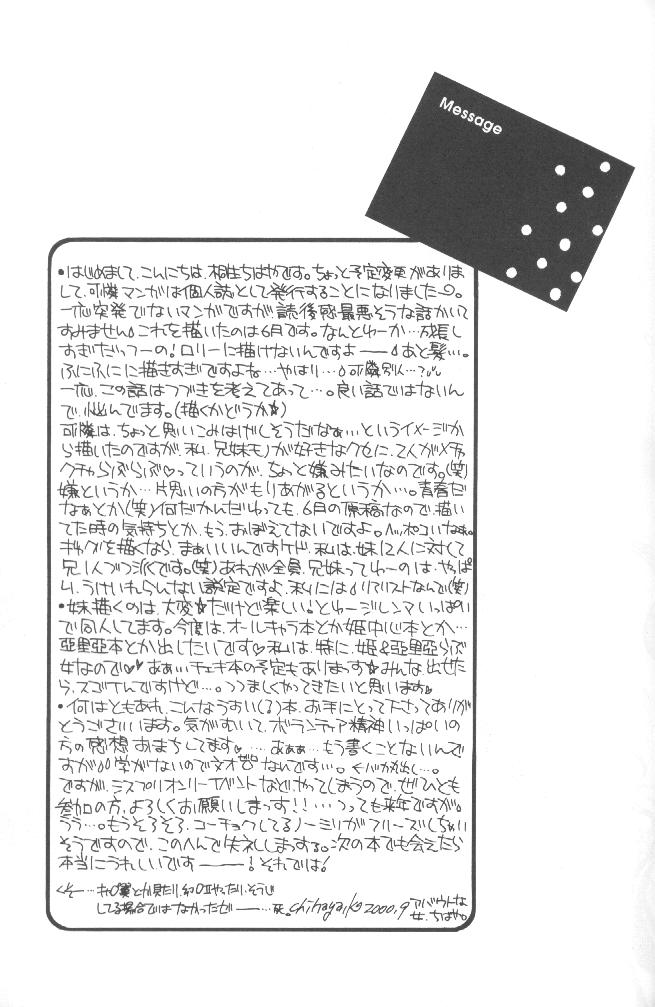 Message
•はじめまして、こんにちは、相生ちはやです。ちょっと予定変更がありま
して、可憐マンガは個人誌として発行することになりました〜。
一応突発でないマンガですが、読後感最悪そうな話かいて
すみません これを描いたのは6月です。なんとゆーか…成長し
すぎだっつーの!ロリーに描けないんですよ―― あと髪…。
ふにふにに描きすぎですよね…やはり…。可憐別人…?
一応、この話はつづきを考えてあって…。良い話ではないん
で、悩んでます。(描くかどうか☆)
可憐は、ちょっと思いこみはげしそうだなぁ…というイメージか
ら描いたのですが、私、兄妹モノが好きなクセに、2人がメチャ
クチャらぶらぶっっていうのが、ちょっと嫌みたいなのです。(笑)
嫌というか…片思いの方がもりあがるというか…。青春だ
なぁとか(笑)何だかんだゆっても、6月の原稿なので、描い
てた時の気持ちとか、もう、おぼえてないですよ。ヘッポコいなぁ。
ギャグを描くなら、まぁいいんですケド、私は、妹12人に対して
兄1人づつ派です。(笑)あれが全員、兄妹ってゆーのは、やっぱ
り、うけいれらんない設定ですよ、私には リアリストなんで(笑)
•妹描くのは、大変☆だけど楽しい!とゆージレンマいっぱい
で同人してます。今度は、オールキャラ本とか姫中心本とか…
亜里亜本とか出したいです 私は、特に、姫&亜里亜らぶ
女なので♥ あぁ…チェキ本の予定もありまっす☆みんな出せた
ら、スゴイんですけど…。つつましくやってきたいと思います
•何はともあれ、こんなうすい(る)本、お手にとって下さってありが
とうございます。気がすいて、ボランティア精神いっぱいの
方の感想 おまちしてます …あぁぁ…もう書くことないんで
すが 学がないので文才ゼロなんです…。←バカ丸出し…。
ですが、ミスプリオンリーイベントなどやってしまうので、ぜひとも
参加の方、よろしくお願いしまっす!!…つっても来年ですが。
うう…。もうそろそろ、コーチョクしてるノーミソがフリーズしちゃい
そうですので、このへんで失礼しまする。次の本でも会えたら
本当にうれしいです――!それでは!
してる場合ではなかったぜ――…死。chihayaiko 2000,9 アバウトな
女、ちはや。